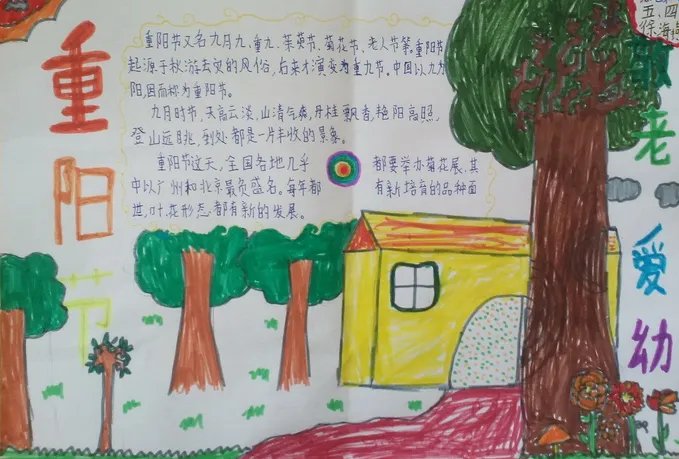 重阳节
重阳节又名九月九、重九、茱萸节、菊花节、老人节等。重阳节
起源于秋游去灾的风俗，后来才演变为重九节。中国以九为
阳，因而称为重阳节。
九月时节，天高云淡，山清气爽，丹桂飘香，艳阳高照，
登山远眺，到处都是一片丰收的景象。
重阳节这天，全国各地几乎 都要举办菊花展，其
中以广州和北京最负盛名。每年都 有新培育的品种面
世，叶、花形态都有新的发展。
敬老爱幼
五、四
保海